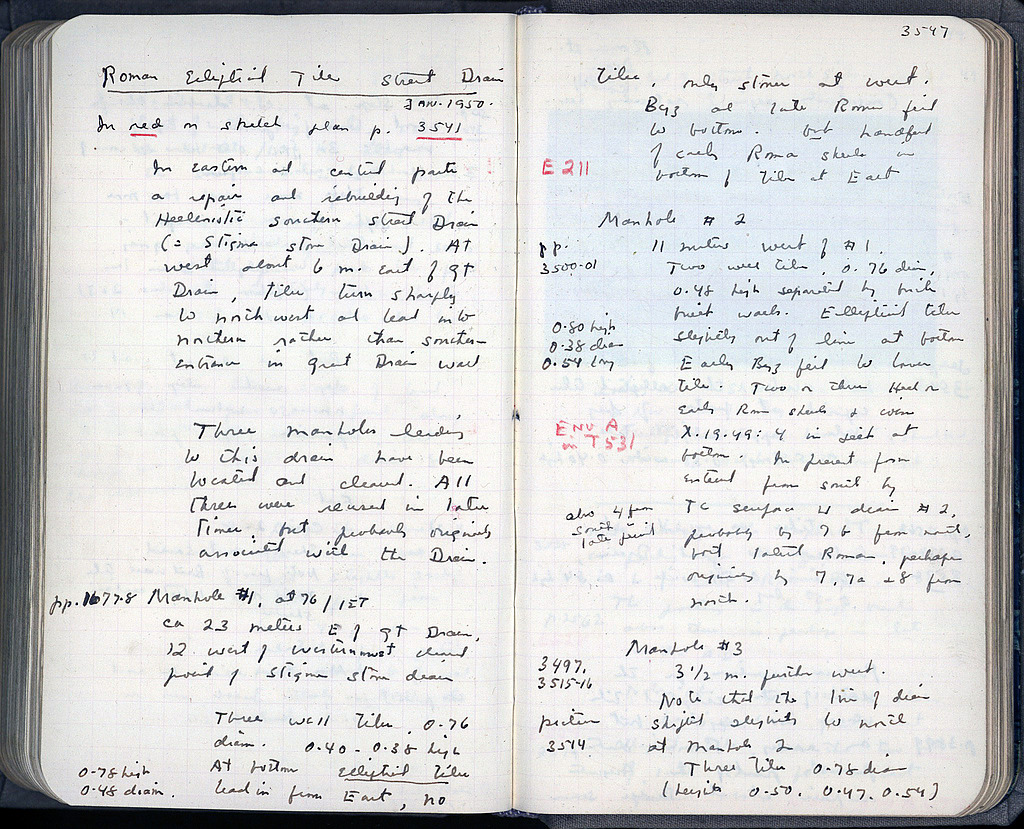 Roman Elliptical Tile Street Drain
JAN. 1950.
In red on sketch plan p. 3541
In eastern and central parts
a repair and rebuilding of the
Hellenistic southern street Drain
(= Stigma stone Drain). At
west about 6 m. east of gt
Drain, tiles turn sharply
to north west and lead into
northern rather than southern
entrance in great Drain wall
Three manholes leading
to this drain have been
located and cleared. All
three were reused in later
times, but probably originally
associated with the Drain.
pp. 1677-8 Manhole #1, at 76/IET
ca 23 meters E of gt Drain,
12 west of westernmost cleared
point of stigma stone drain
Three well tiles, 0.76
diam. 0.40 - 0.38 high
0.78 high
0.48 diam.
At bottom elliptical tiles
lead in from East, no
3547
tiles, only stones at west.
Byz and late Roman fill
to bottom. but handful
E 211
of early Roman sherds in
bottom of tiles at East
Manhole # 2
pp.
3500-01
11 meters west of #1.
Two well tiles, 0.76 diam,
0.48 high separated by brick
built walls. Elliptical tiles
0.80 high
0.38 diam
0.54 long
slightly out of line at bottom
Early Byz fill to lower
tile. Two or three Hell or
early Rom sherds & coin
ENV A
in T531
X.19.49: 4 in at
bottom. In present form
entered from south by
also 4 from
south
late
TC surface W drain # 2,
probably by 7 b from north,
both latest Roman, perhaps
originally by 7, 7a & 8 from
north.
Manhole #3
3497,
3515-16
3 1/2 m. further west.
Note that the line of drain
picture
3514
shifted slightly to north
at Manhole 2
Three tiles 0.78 diam
(heights 0.50, 0.47, 0.54)